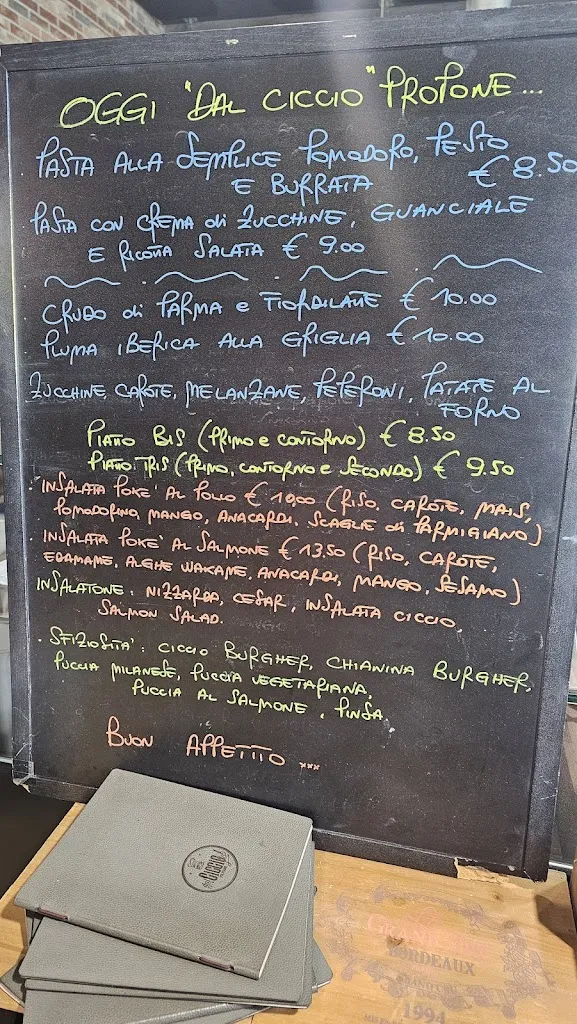 OGGI "DAL CICCIO" PROPONE...
PASTA ALLA SEMPLICE POMODORO, PESTO
E BURRATA € 8.50
PASTA CON CREMA di ZUCCHINE, GUANCIALE
E RICOTTA SALATA € 9.00
CRUDO di PARMA e FIORDILATTE € 10.00
PLUMA IBERICA ALLA GRIGLIA € 10.00
ZUCCHINE, CAROTE, MELANZANE, PEPERONI, PATATE AL
FORNO
PIATTO BIS (PRIMO e CONTORNO) € 8.50
PIATTO TRIS (PRIMO, CONTORNO e SECONDO) € 9.50
• INSALATA POKE' AL POLLO € (RISO, CAROTE, MAIS,
POMODORINO, MANGO, ANACARDI, SCAGLIE di PARMIGIANO)
• INSALATA POKE' AL SALMONE € 13.50 (RISO, CAROTE,
EDAMAME, ALGHE WAKAME, ANACARDI, MANGO, SESAMO)
INSALATONE: NIZZARDA, CESAR, INSALATA CICCIO,
SALMON SALAD.
• SFIZIOSITA': CICCIO BURGHER, CHIANINA BURGHER,
PUCCIA MILANESE, PUCCIA VEGETARIANA,
PUCCIA AL SALMONE, PINSA.
BUON APPETITO ...
CICCIO
BORDEAUX
1994